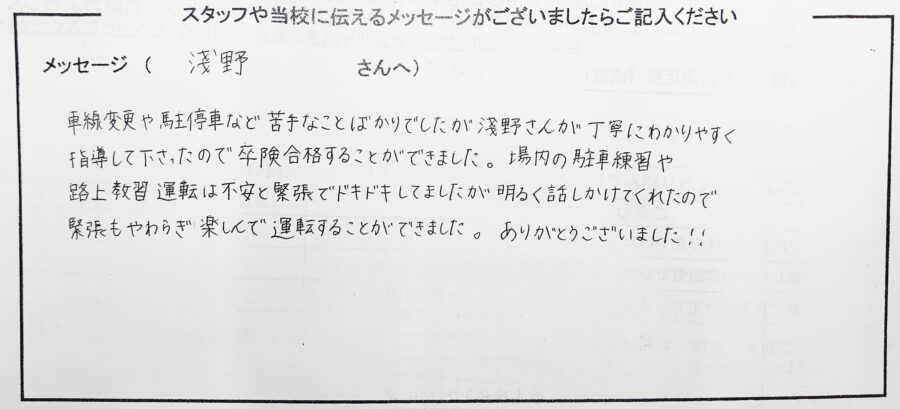 スタッフや当校に伝えるメッセージがございましたらご記入ください
メッセージ ( 淺野 さんへ)
車線変更や駐停車など苦手なことばかりでしたが淺野さんが丁寧にわかりやすく
指導して下さったので卒険合格することができました。場内の駐車練習や
路上教習運転は不安と緊張でドキドキしてましたが明るく話しかけてくれたので
緊張もやわらぎ楽しんで運転することができました。ありがとうございました!!